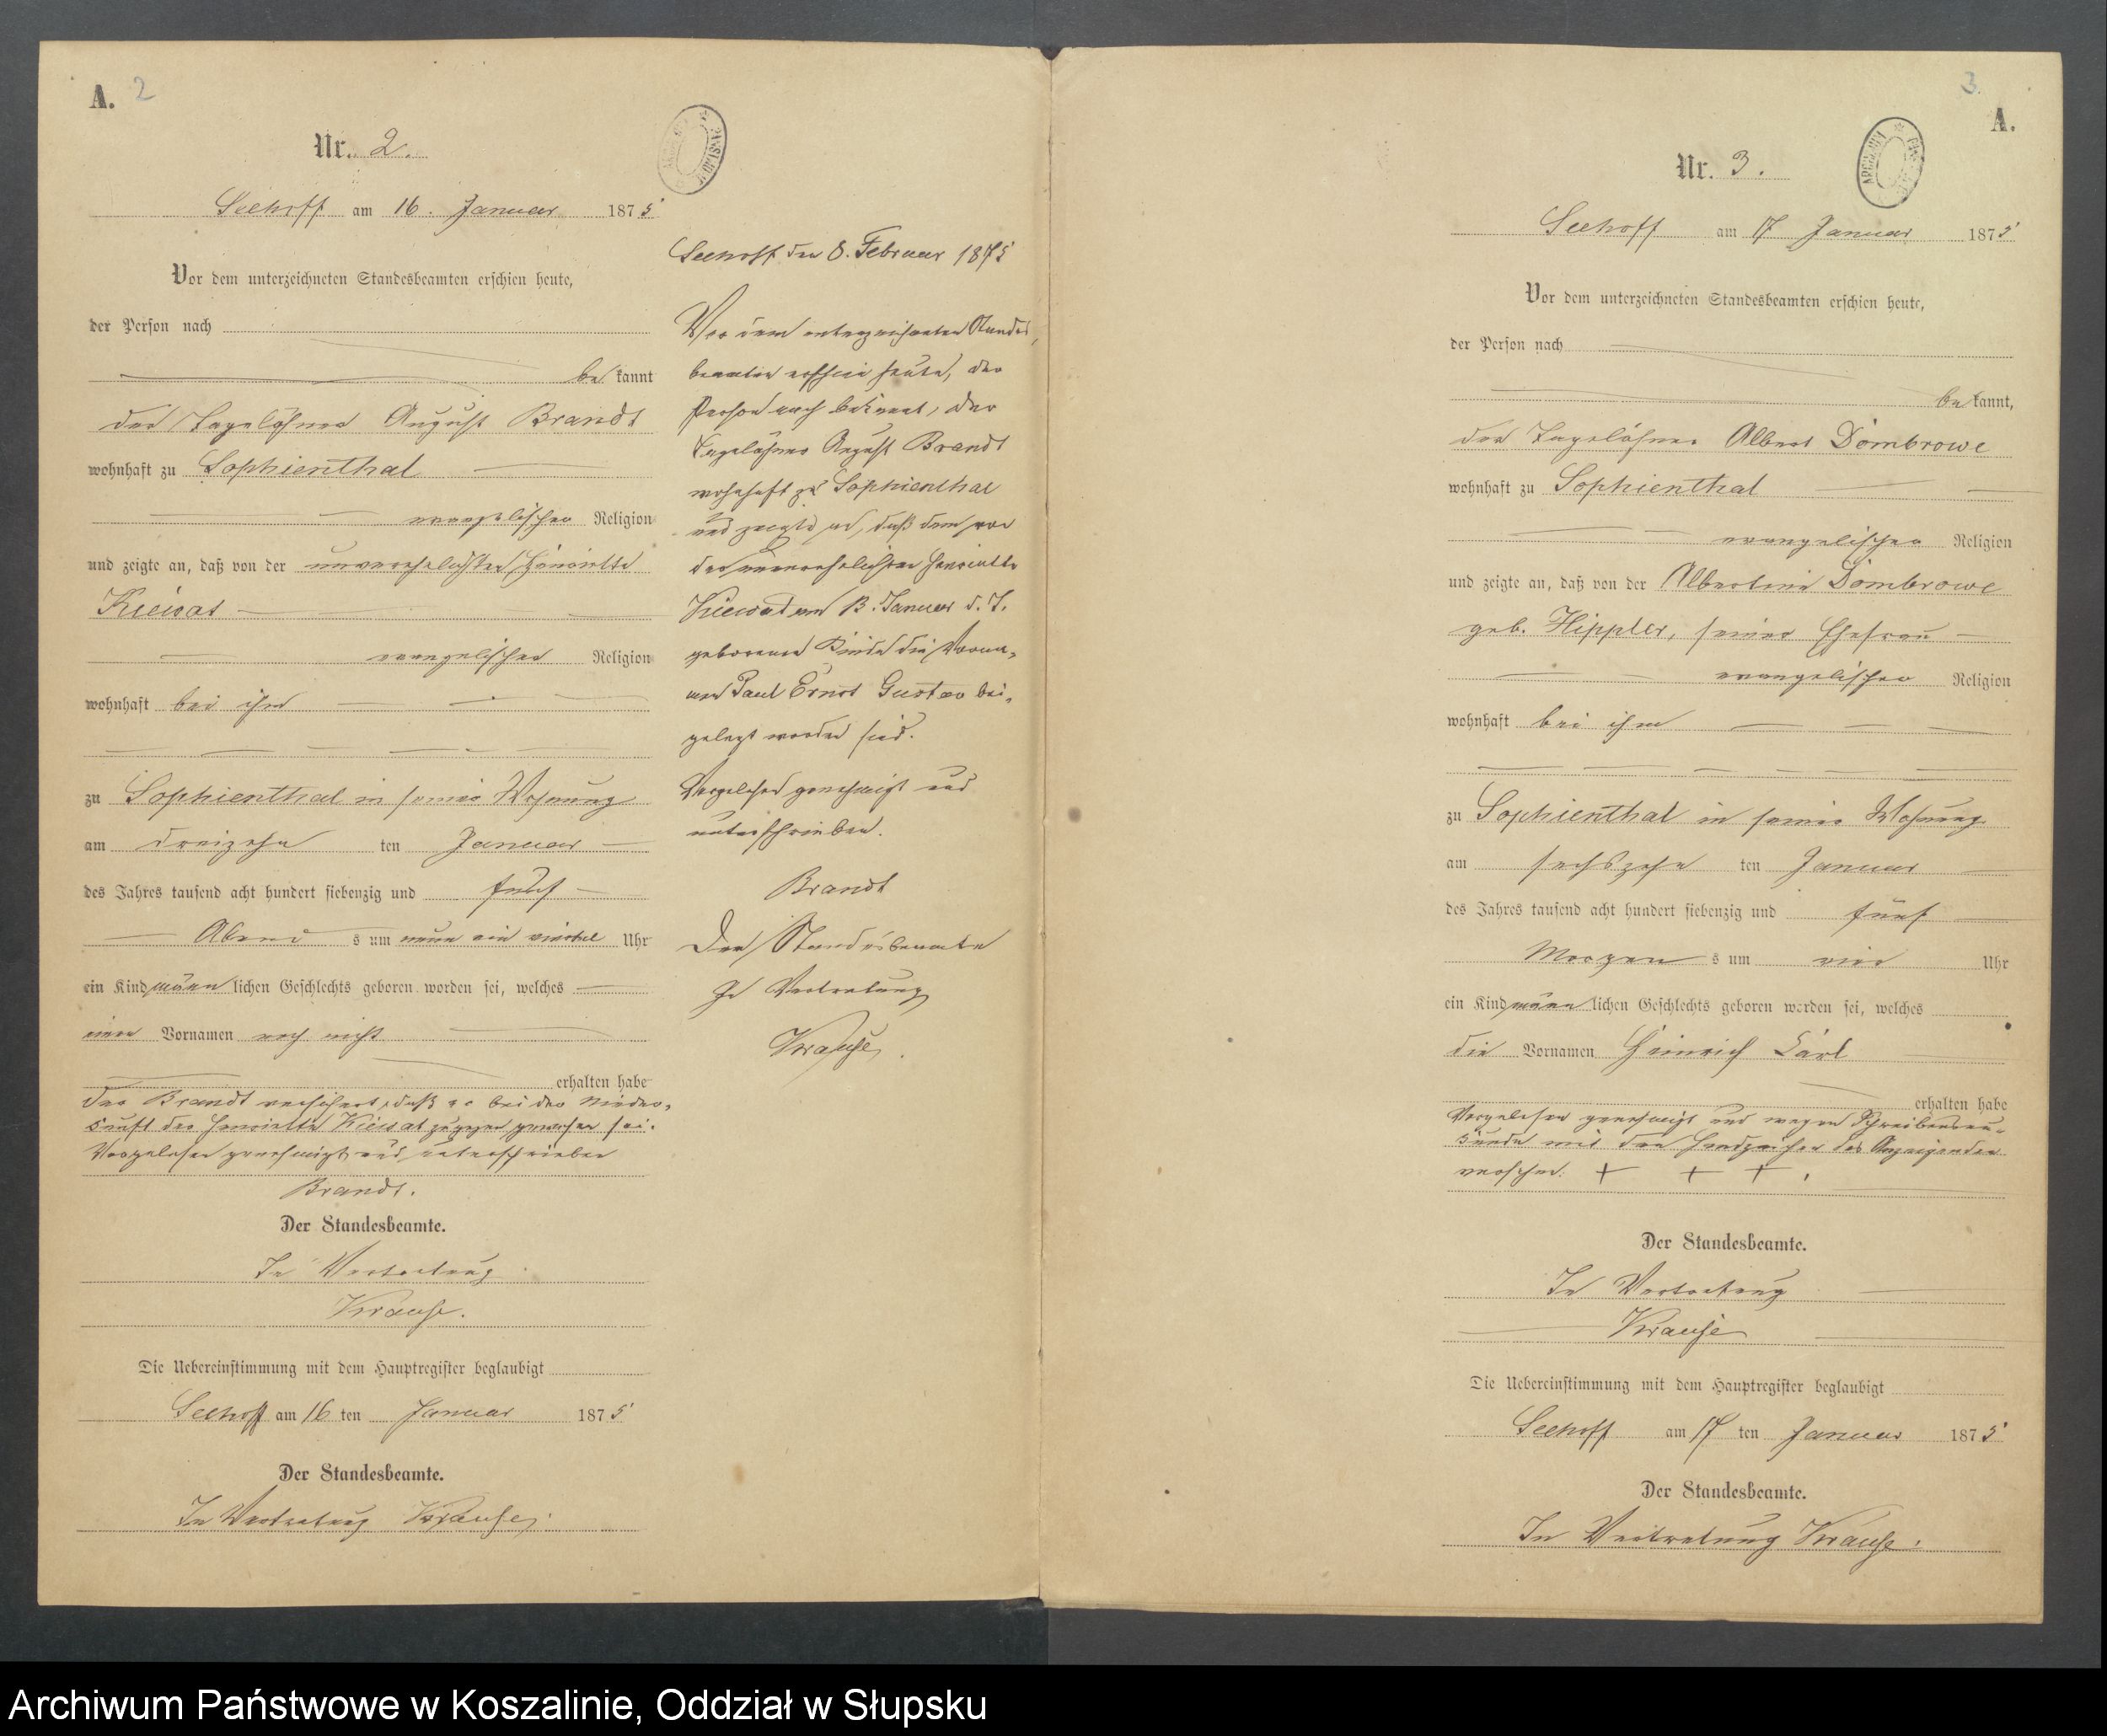 A. 2
Nr. 2.
Seehoff am 16. Januar 1875
Vor dem unterzeichneten Standesbeamten erschien heute,
der Person nach
bekannt
der Tagelöhner August Brandt
wohnhaft zu Sophienthal
evangelischer Religion
und zeigte an, daß von der unverehelichten Henriette
Kiewat
evangelischer Religion
wohnhaft bei ihm
zu Sophienthal in seiner Wohnung
am dreizehn ten Januar
des Jahres tausend acht hundert siebenzig und fünf
Abends um neun ein viertel Uhr
ein Kind männlichen Geschlechts geboren worden sei, welches
einen Vornamen noch nicht
erhalten habe
der Brandt versichert, daß er bei der Nieder-
kunft der Henriette Kiewat zugegen gewesen sei.
Vorgelesen genehmigt und unterschrieben
Brandt.
Der Standesbeamte.
In Vertretung
Krause.
Die Uebereinstimmung mit dem Hauptregister beglaubigt
Seehoff am 16 ten Januar 1875
Der Standesbeamte.
In Vertretung Krause.
Seehoff den 8. Februar 1875
Vor dem unterzeichneten Standes-
beamten erschien heute, der
Person nach bekannt, der
Tagelöhner August Brandt
wohnhaft zu Sophienthal
und zeigte an, daß dem von
der unverehelichten Henriette
Kiewat am 13. Januar d. J.
geborenen Kinde die Vorna-
men Paul Ernst Gustav bei-
gelegt worden sind.
Vorgelesen genehmigt und
unterschrieben.
Brandt
Der Standesbeamte
In Vertretung
Krause
3.
A.
ARCHIWUM
Nr. 3.
Seehoff am 17 Januar 1875
Vor dem unterzeichneten Standesbeamten erschien heute,
der Person nach
bekannt,
der Tagelöhner Albert Dombrowe
wohnhaft zu Sophienthal
evangelischer Religion
und zeigte an, daß von der Albertine Dombrowe
geb. Hippler, seiner Ehefrau
evangelischer Religion
wohnhaft bei ihm
zu Sophienthal in seiner Wohnung
am sechszehn ten Januar
des Jahres tausend acht hundert siebenzig und fünf
Morgens um vier Uhr
ein Kind männlichen Geschlechts geboren worden sei, welches
die Vornamen Heinrich Carl
erhalten habe
Vorgelesen genehmigt und wegen Schreibensun-
kunde mit den Handzeichen des Anzeigenden
versehen. + + +
Der Standesbeamte.
In Vertretung
Krause
Die Uebereinstimmung mit dem Hauptregister beglaubigt
Seehoff am 17 ten Januar 1875
Der Standesbeamte.
In Vertretung Krause.
Archiwum Państwowe w Koszalinie, Oddział w Słupsku